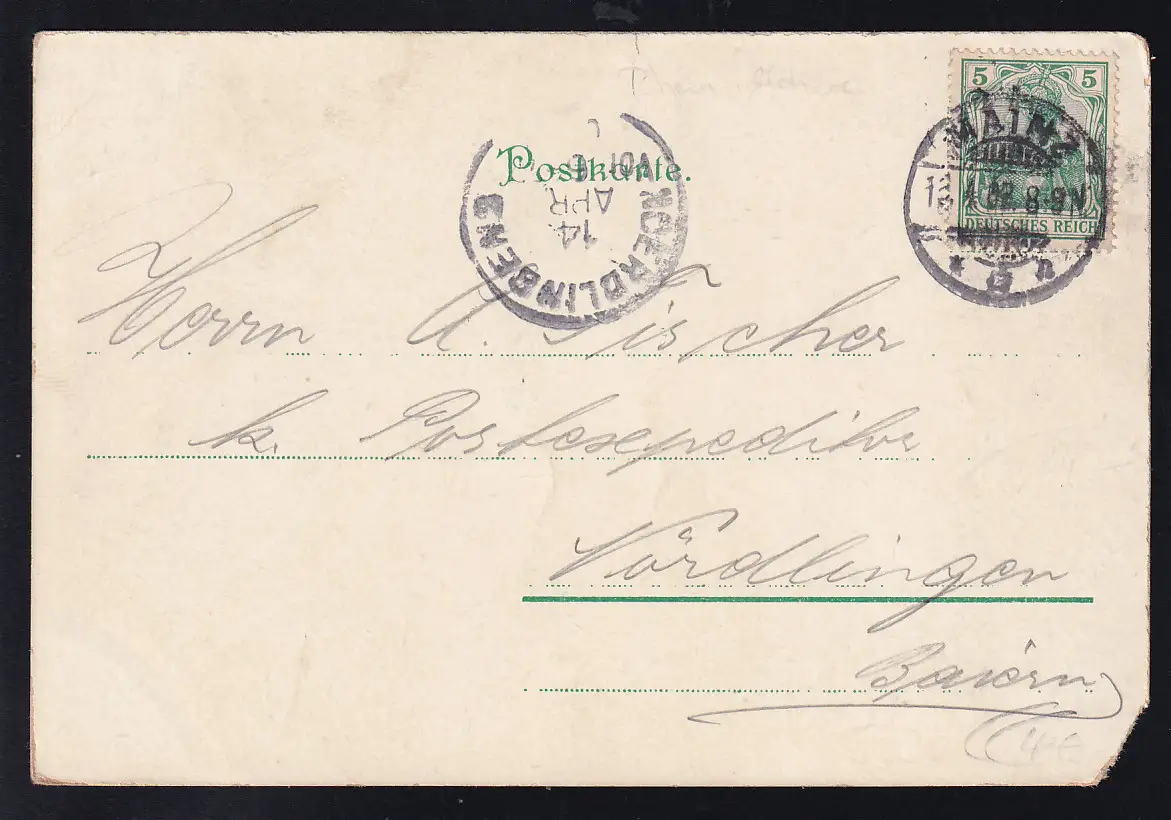 5 5
DEUTSCHES REICH
MAINZ
8-9N
Postkarte.
14
APR
NOERDLINGEN
Herrn A. Fischer
k. Postexpeditor
Nördlingen
Baiern
4€